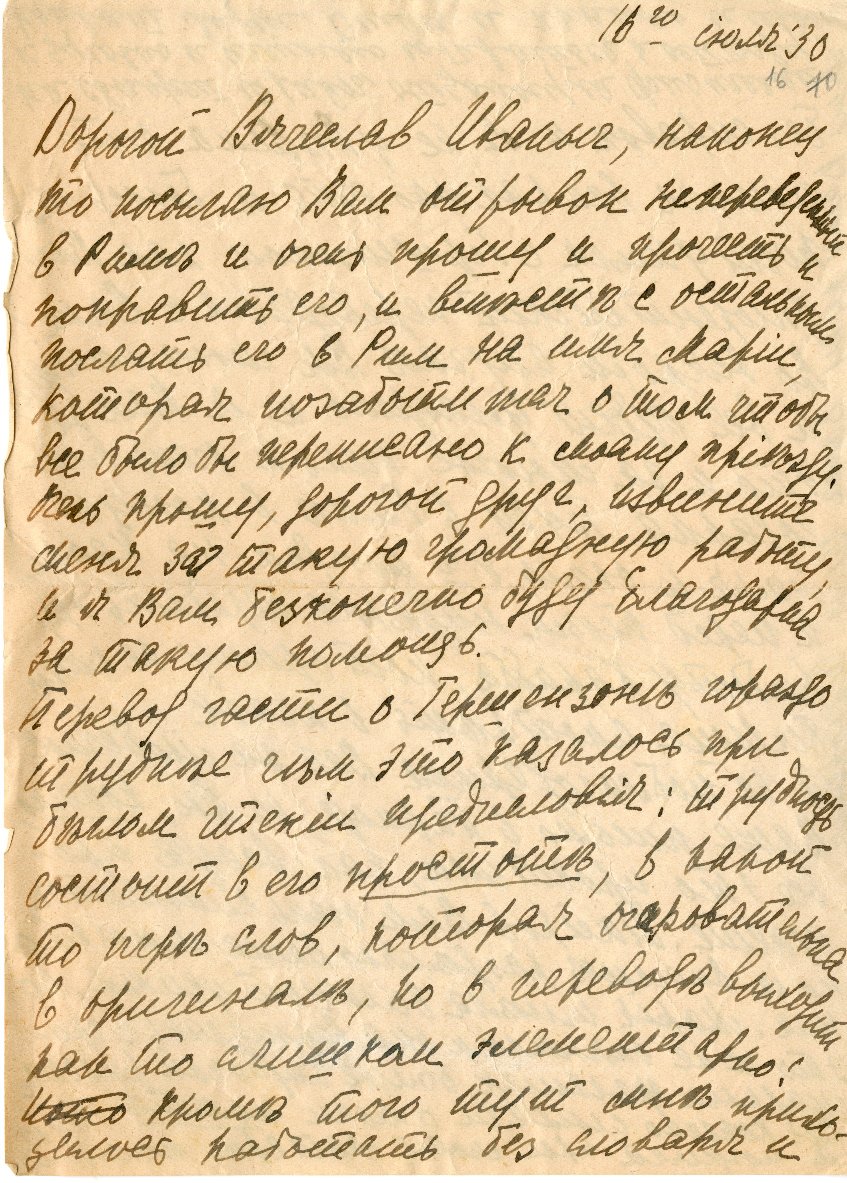 16го іюля '30
16 70
Дорогой Вячеслав Иваныч, наконец
то посылаю Вам отрывок непереведенный
в Римѣ и очень прошу и прочесть и
поправить его, и вмѣстѣ с остальным
послать его в Рим на имя Маріи,
которая позаботится о том чтобы
все было бы переписано к моему пріѣзду.
Очень прошу, дорогой друг, извините
меня за такую громадную работу,
и я Вам безконечно буду благодарна
за такую помощь.
Перевод части о Гершензонѣ гораздо
труднѣе чѣм это казалось при
бѣглом чтеніи предисловія: трудность
состоит в его простотѣ, в какой
то игрѣ слов, которая очаровательна
в оригиналѣ, но в переводѣ выходит
как то слишком элементарно;
кромѣ того тут мнѣ прихо-
дилось работать без словаря и